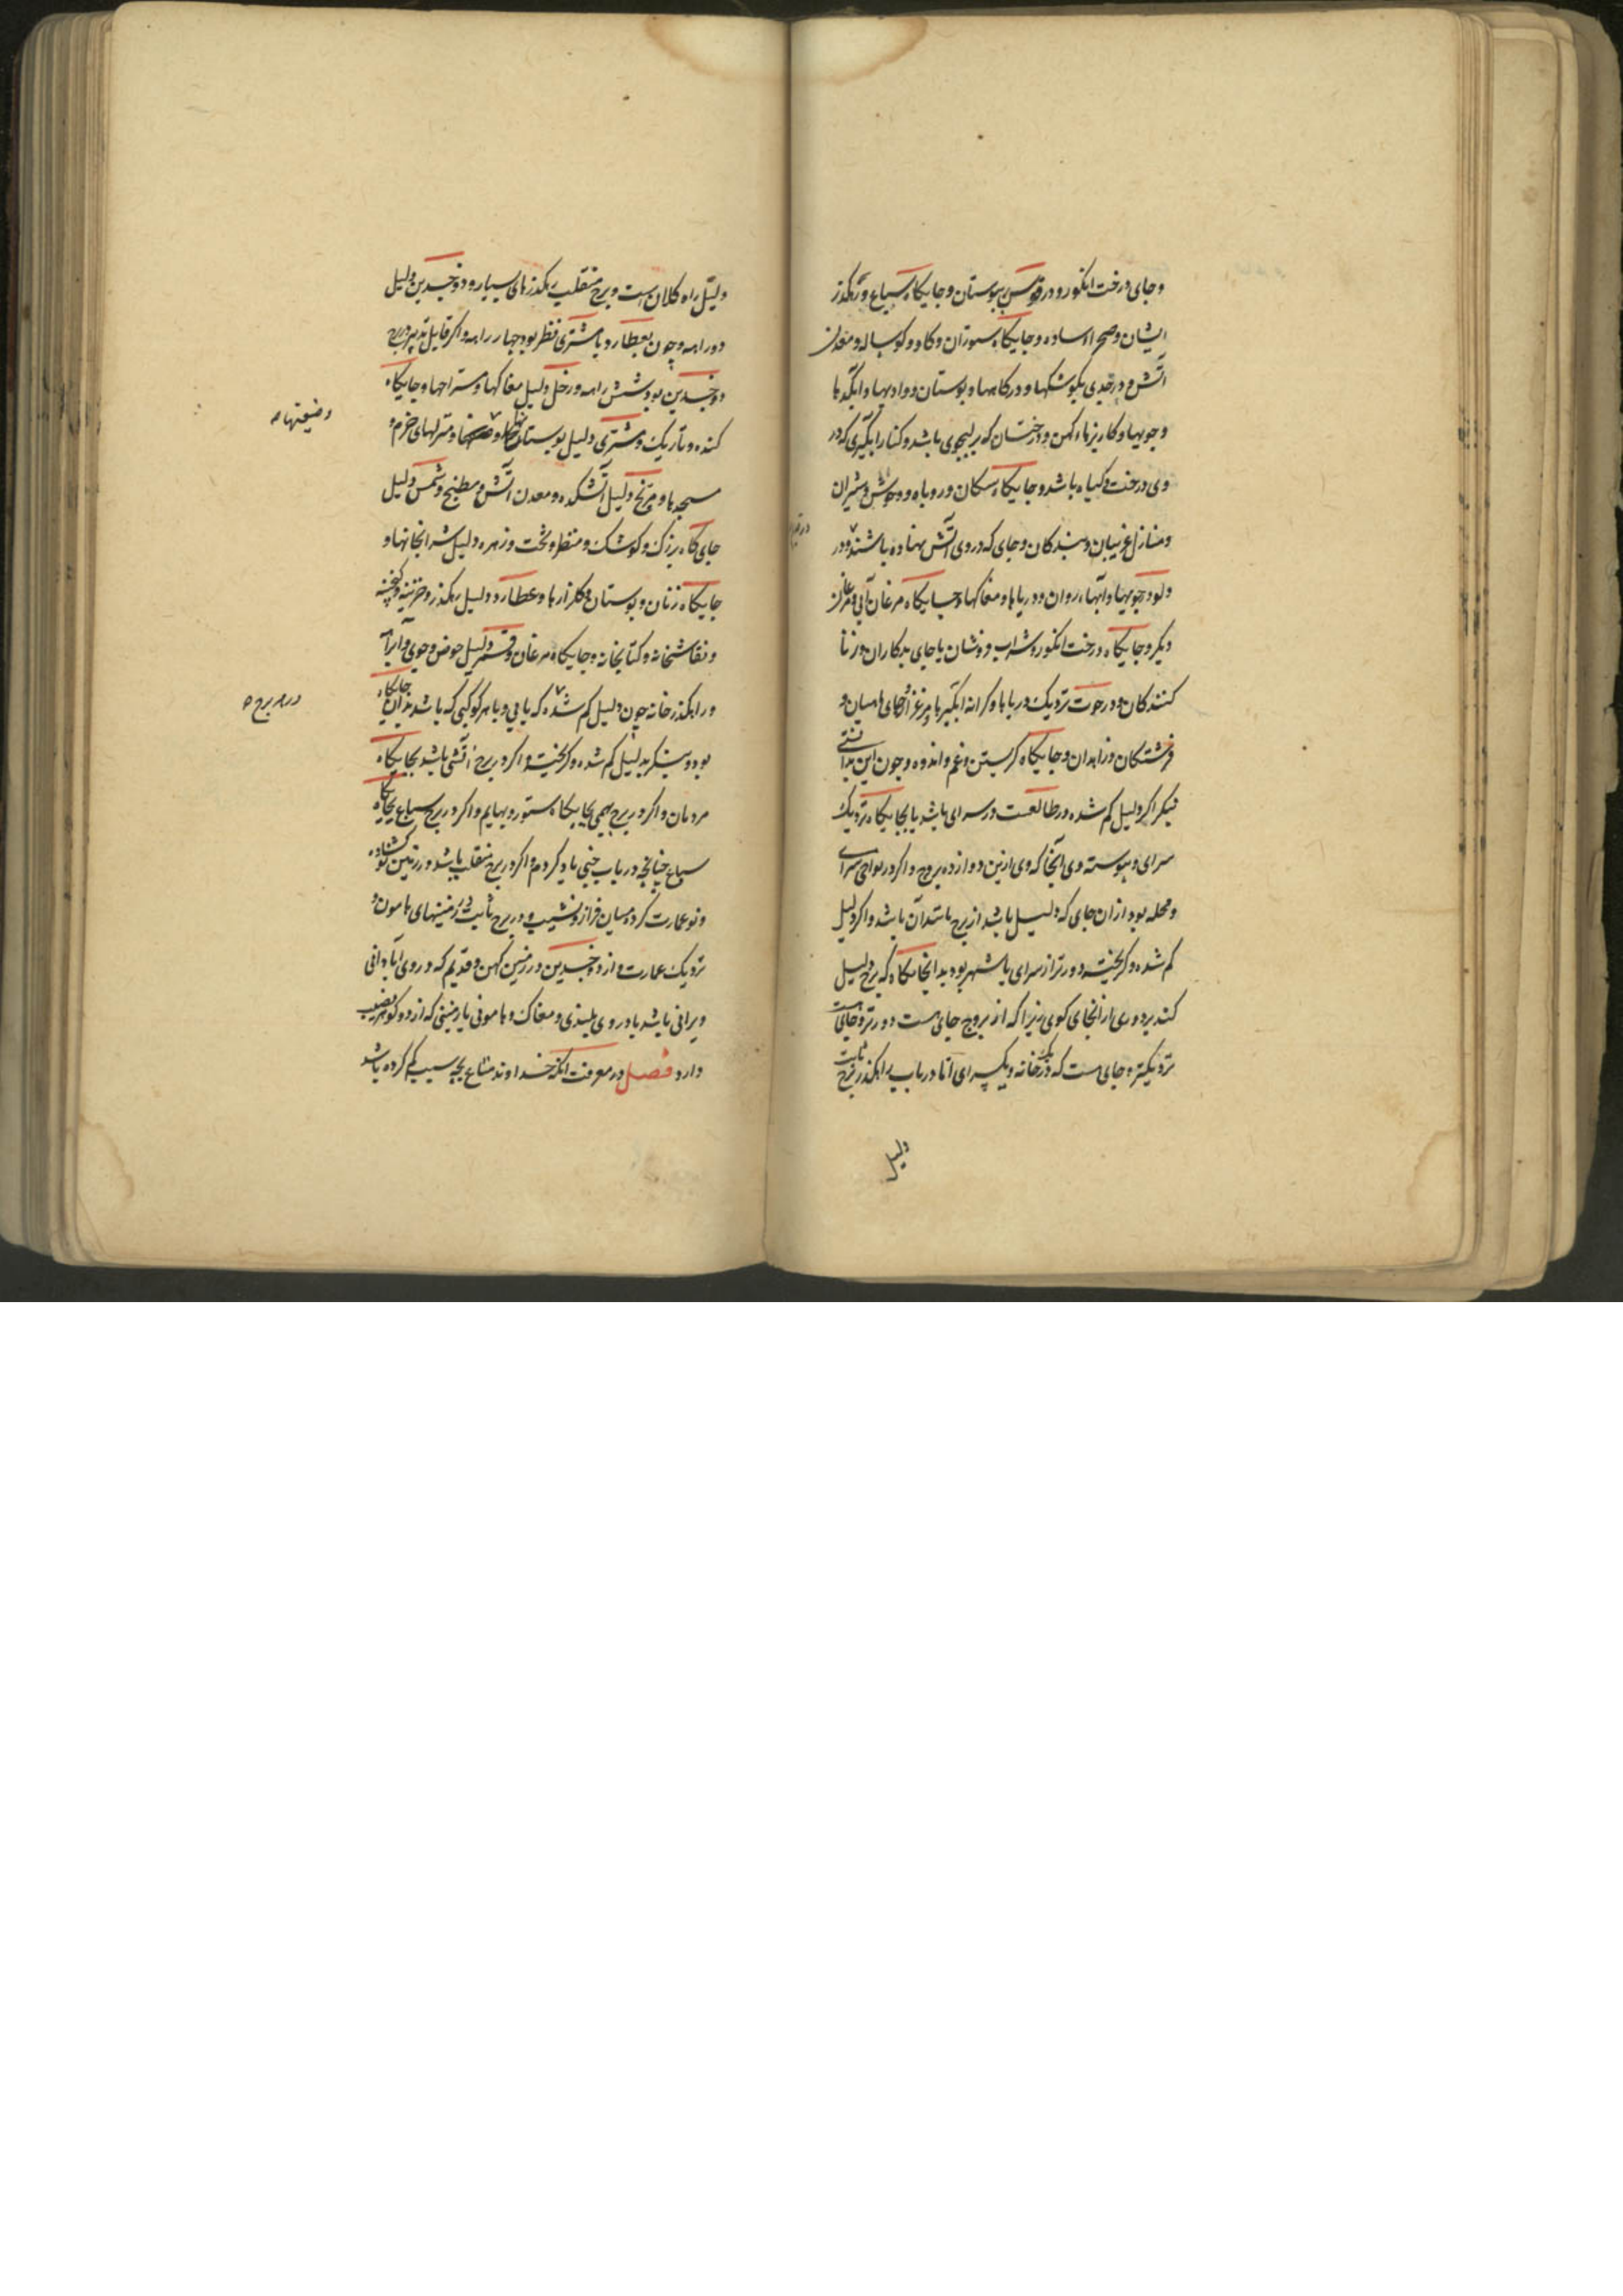 وجای درخت انکور و در قوس ببوستان و جایکاه سباع و رهکذر
ایشان و صحرا ساده و جایکاه ستوران و کاو و کوساله و معدن
آتش و در جدی بکوشکها و درکاهها و بوستان و وادیها و ابکیرها
وجویها و کاریزهاء کهن و درختان که بر لبجوی باشد و کنار ابکیری که در
وی درخت و کیاه باشد و جایکاه سکان و روباه و وحوش و شیران
و منازل غریبان و بندکان و جای که در وی آتش نهاده باشند و در
دلو و جویها و آبهاء روان و دریاها و مغاکها و جایکاه مرغان آبی و مرغان
دیکر و جایکاه درخت انکور و شراب فروشان یا جای بدکاران و زنا
کنندکان و در حوت نزدیک دریاها و کرانه ابکیرها و مرغزار و جای ماهیان و
فرشتکان و زاهدان و جایکاه کریستن و غم و اندوه و چون این بدانستی
بنکر اکر دلیل کم شده در طالعست در سرای باشد یا بجایکاه نزدیک
سرای و پیوسته وی آنجا که وی ازین دوازده بروج و اکر در نواحی سرای
و محله بود ازان جای که دلیل باشد از برج باشد آن باشد و اکر دلیل
کم شده و کریخته دورتر از سرای یا شهر بود بدانجایکاه که برج دلیل
کند بر دوری از انجای کوی زیرا که از بروج جای هست دورتر و جای هست
نزدیکتر و جای هست که در یک خانه و یکسرای اما در باب راهکذر برج ثابت
دلیل
دلیل راه کلان است و برج منقلب رهکذرهای سیاره و ذوجسدین دلیل
دو راهه و چون بعطارد یا مشتری نظر بود چهار راهه و اکر قابل تدبیر در برج
ذوجسدین بود شش راهه و زحل دلیل مغاکها و مستراحها و جایکاه
کنده و تاریک و مشتری دلیل بوستانها و منزلهای خرم و
و ضیعتها
مسجدها و مریخ دلیل آتشکده و معدن آتش و مطبخ و شمس دلیل
جای کاه بزرک و کوشک و منظر و تخت و زهره دلیل شرابخانها و
جایکاه زنان و بوستان و کلزارها و عطارد دلیل رهکذر و خزینه و کنجینه
و نقاشخانه و کتابخانه و جایکاه مرغان و قمر دلیل حوض و جوی و آب راه
و راهکذر خانه چون دلیل کم شده که یابی و یا هر کوکبی که باشد بدان جایکاه
در هر برج
بود و بنکر بدلیل کم شده و کریخته و اکر در برج آتشی باشد بجایکاه
مردمان و اکر در برج بهیمی بجایکاه ستور و بهایم و اکر در برج سباع بجایکاه
سباع چنانچه در باب خبی یاد کردم و اکر در برج منقلب باشد در زمین کشاده
و نو عمارت کرده میان فراز و نشیب و در برج ثابت در زمینهای هامون و
نزدیک عمارت و از ذوجسدین در زمین کهن و قدیم که در وی آبادانی
ویرانی باشد یا در وی بلندی و مغاک و هامونی یا زمینی که از دو کوهر نصیب
دارد فصل در معرفت انکه خداوند متاع بچه سبب کم کرده باشد